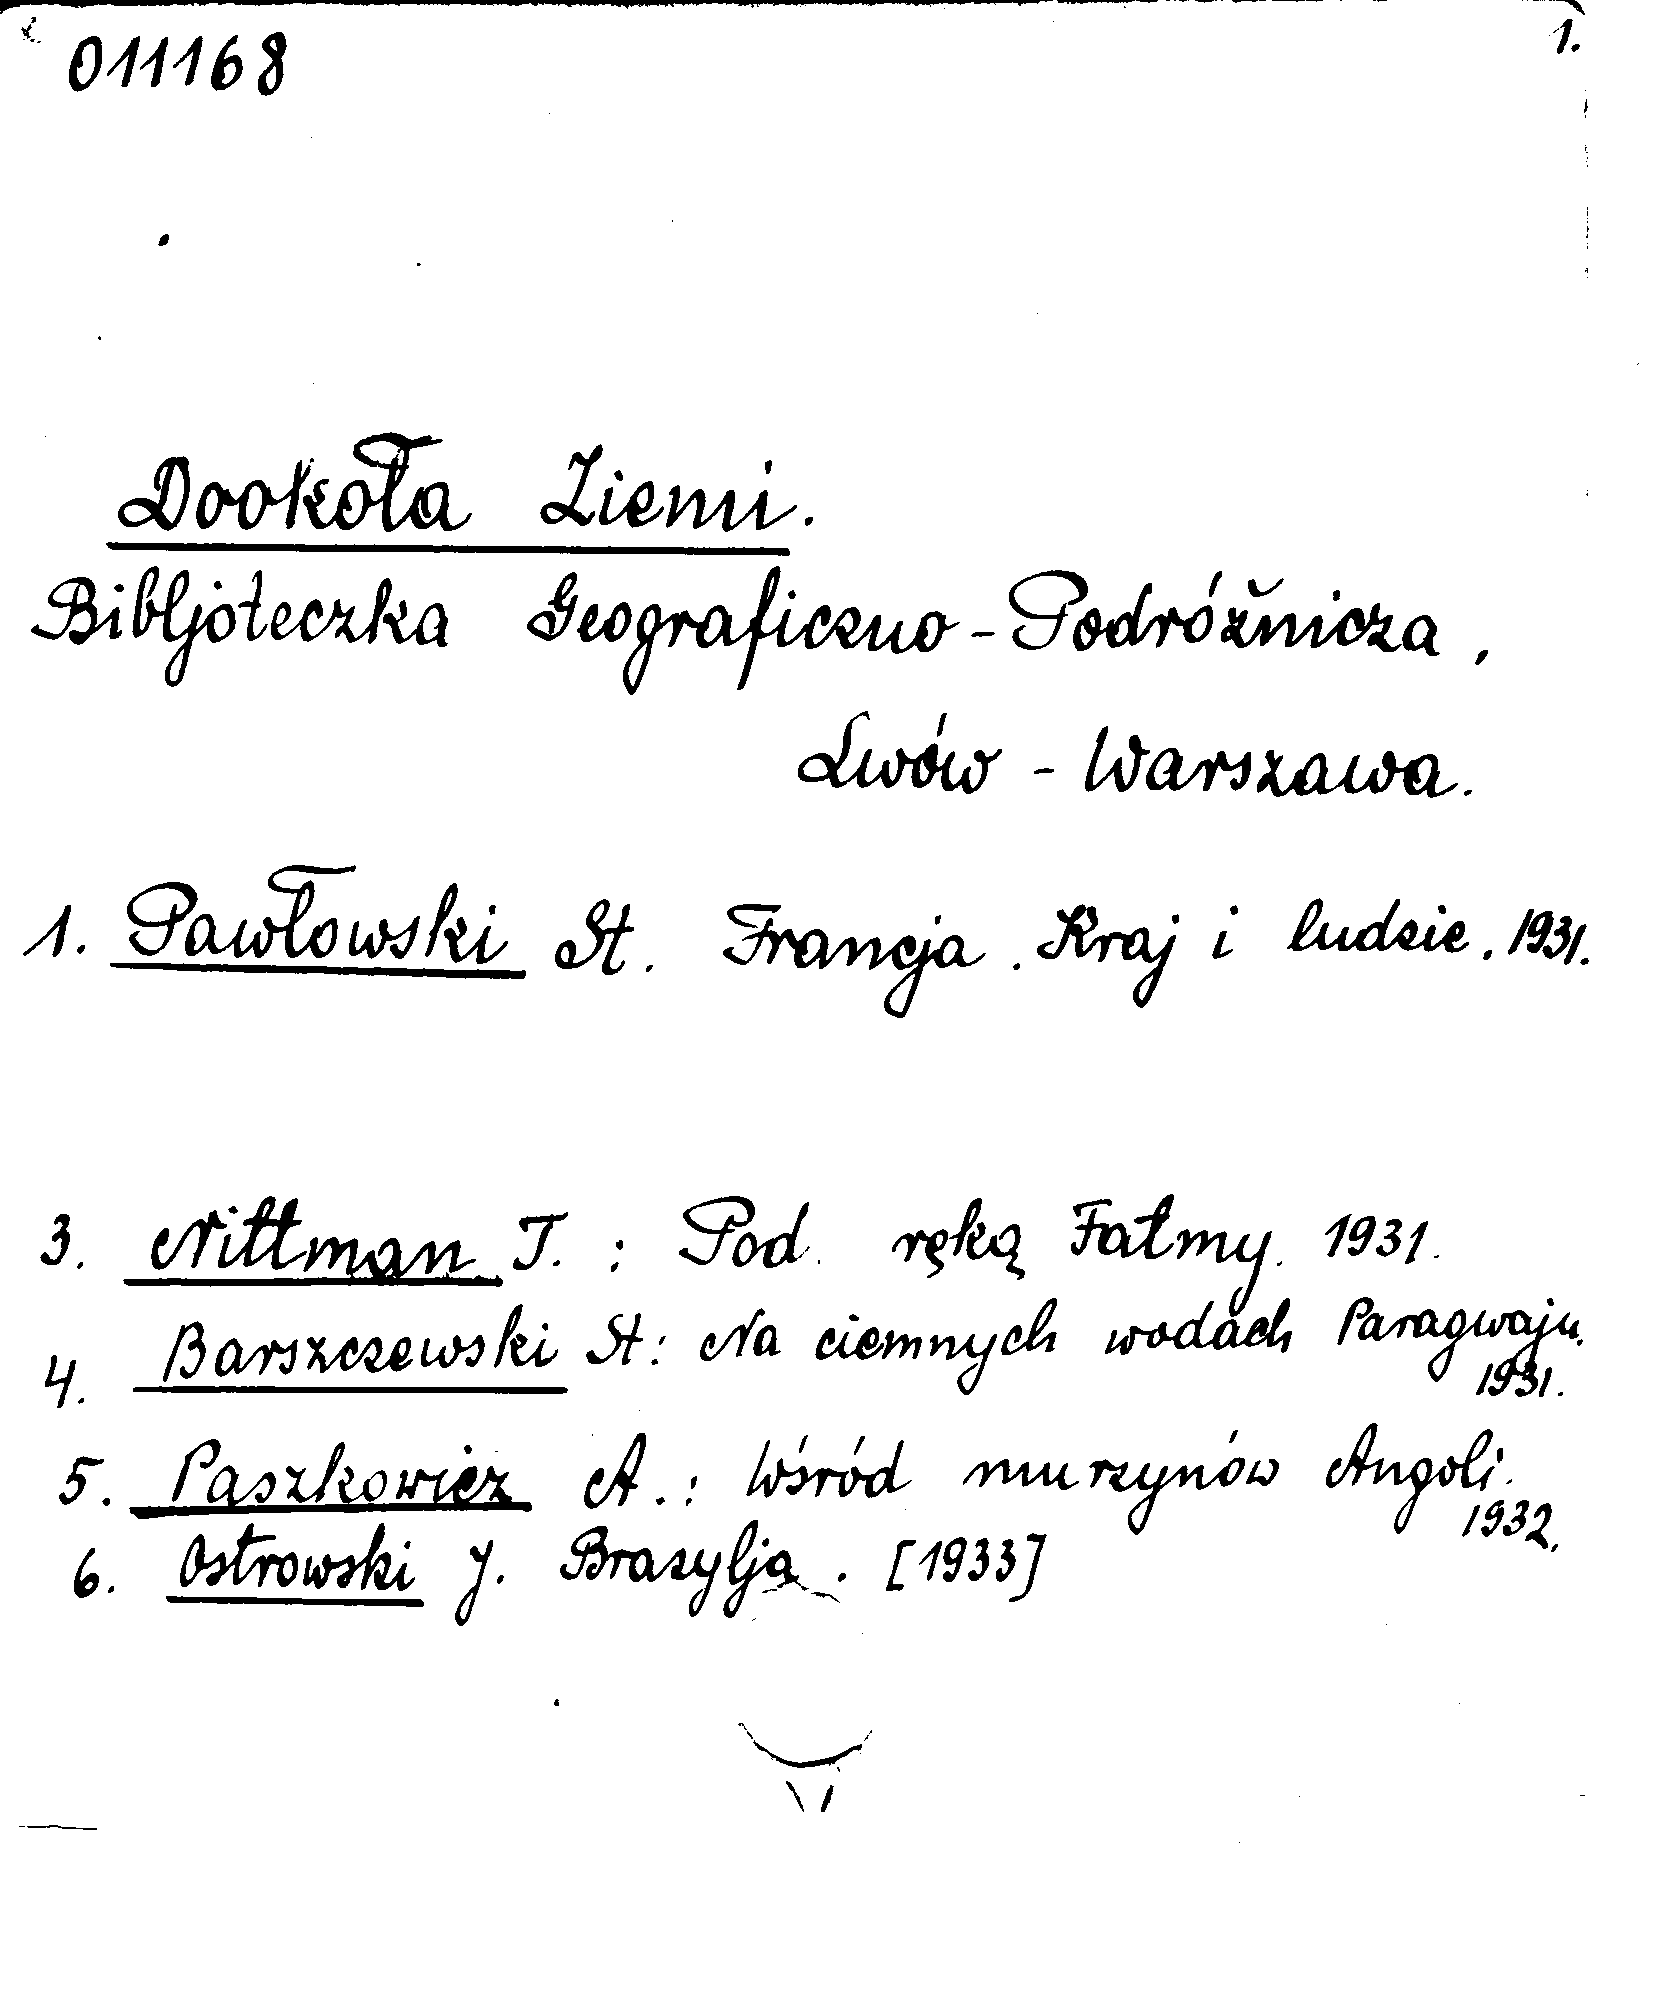 011168
1.
Dookoła Ziemi.
Bibljoteczka Geograficzno-Podróżnicza,
Lwów - Warszawa.
1. Pawłowski St. Francja. Kraj i ludzie. 1931.
3. Nittman T.: Pod ręką Fatmy. 1931.
4. Barszczewski St: Na ciemnych wodach Paragwaju.
1931.
5. Paszkowicz A.: Wśród murzynów Angoli.
1932.
6. Ostrowski J. Brazylja. [1933]